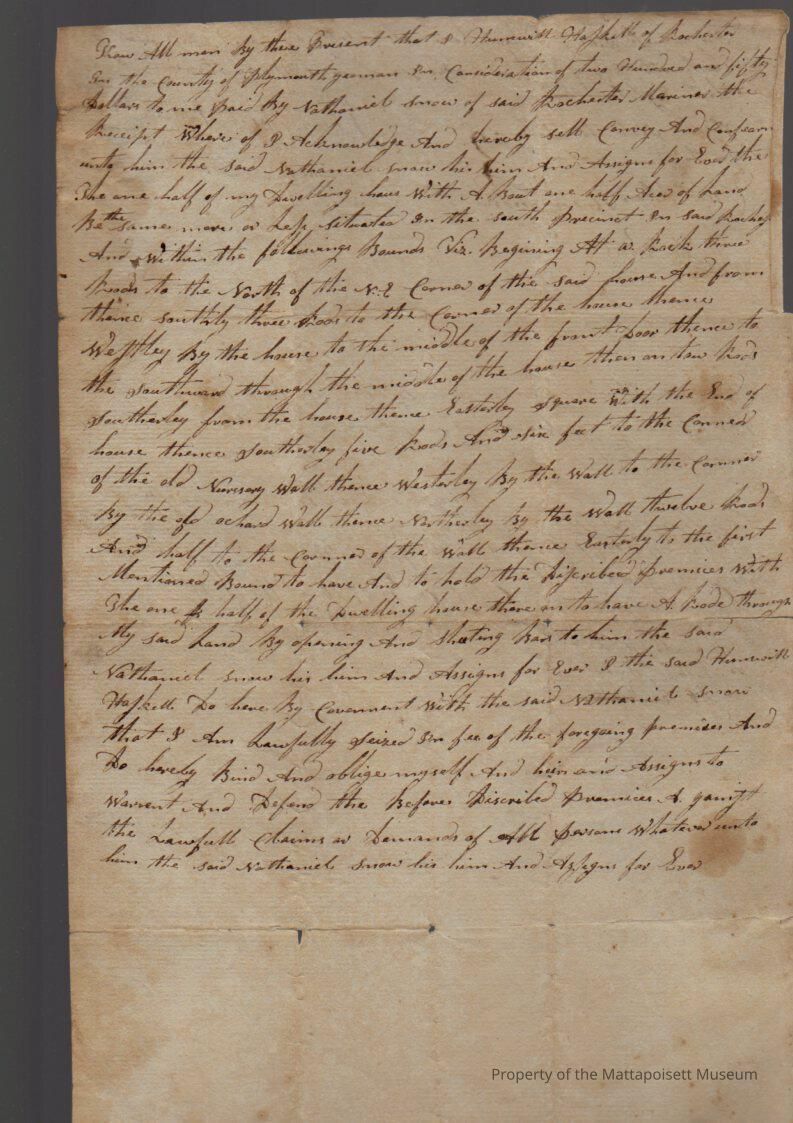 Know All men By these Present that I Hunewill Haskell of Rochester
In the County of Plymouth yeoman In Consideration of two Hundred and fifty
Dollars to me Paid By Nathaniel Snow of said Rochester Mariner the
Receipt Where of I Acknowledge And hereby sell Convey And Confearm
unto him the said Nathaniel Snow his him And Assigns for Ever the
The one half of my Dwelling hous With A Bout one half Acer of Land
Be the same more or Less situated In the south Precinct In said
And Within the followings Bounds Viz. Begining At a Rock three
Rods to the North of the N.E Corner of the said house And from
thence southly three Rods to the Corner of the house thence
Westley By the house to the middle of the front Door thence to
the southward through the middle of the house then on tow Rods
Southerley from the house thence Easterley Square With the End of
house thence Southerley five Rods And six feet to the Corner
of the old Nursery Wall thence Westerley By the Wall to the Corner
By the old ochard Wall thence Northerley By the Wall twelve Rods
And half to the Cornner of the Wall thence Easterly to the first
Mentioned Bound to have And to hold the Discribed Premices With
The one half of the Dwelling house there on to have A Rode through
My said Land By opening And Shuting Bars to him the said
Nathaniel Snow his him And Assigns for Ever I the said Hunewill
Haskell Do here By Covernment With the said Nathaniel Snow
that I Am Lawfully Seized In fee of the foregoing Premises And
Do hereby Bind And oblige myself And heirs and Assigns to
Warrent And Defend the Before Discribed Premices A gainst
the Lawfull Claims or Demands of All Persons Whatever unto
him the said Nathaniel Snow his him And Assigns for Ever
Property of the Mattapoisett Museum